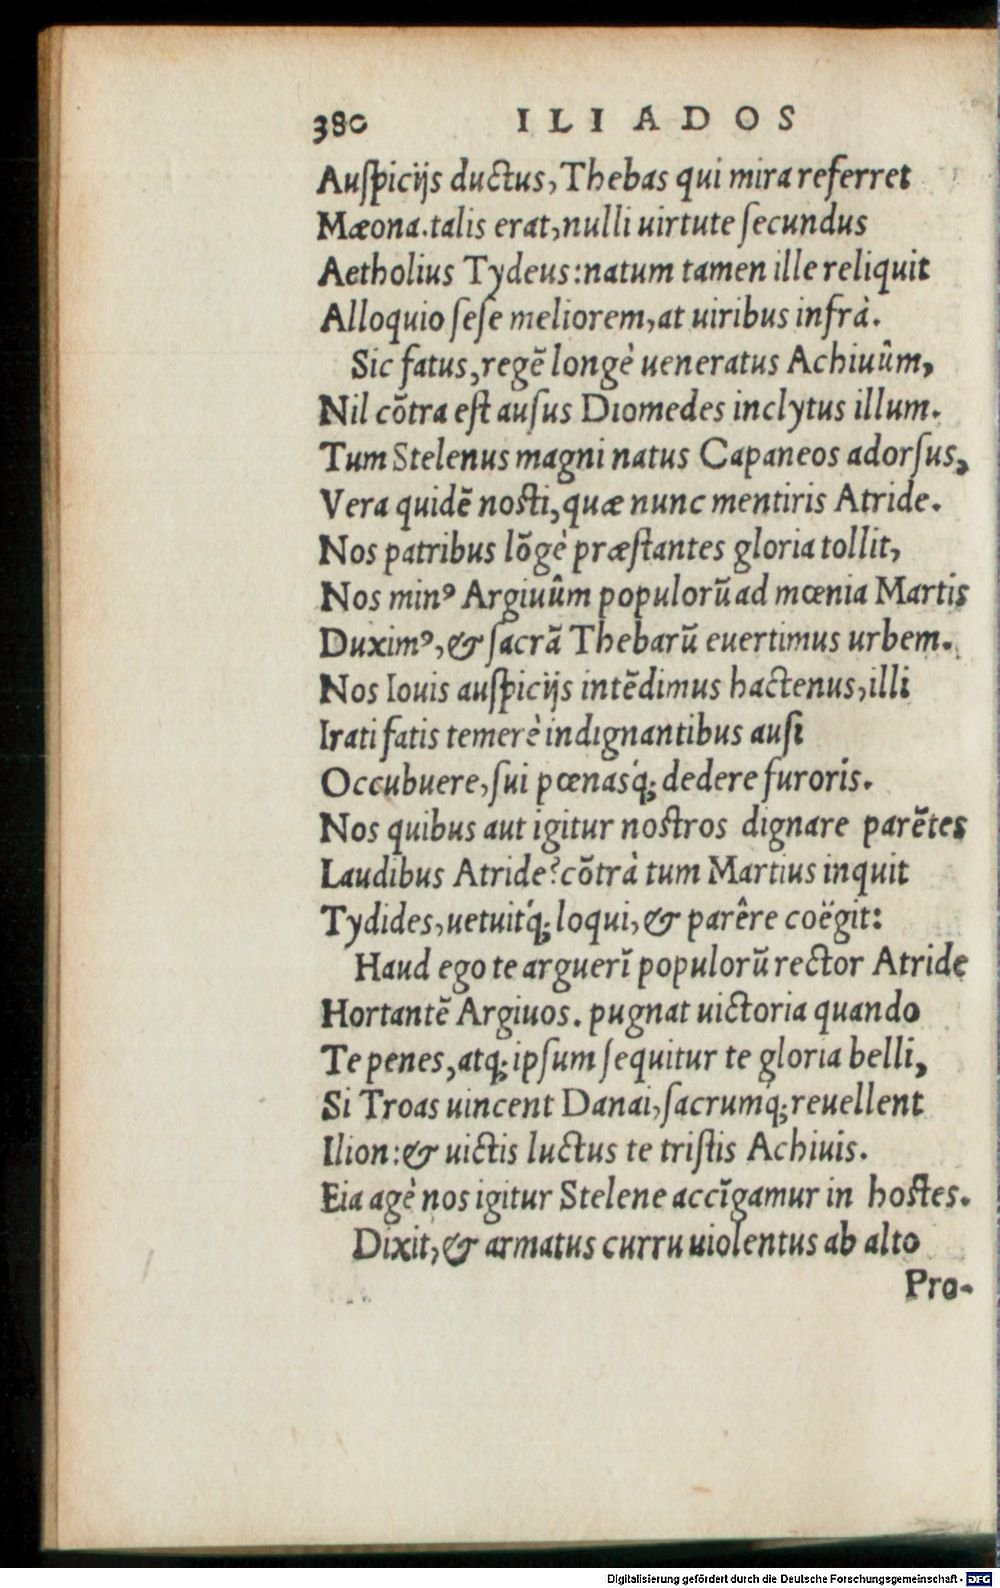 380 ILIADOS
Auſpicijs ductus, Thebas qui mira referret
Mæona. talis erat, nulli uirtute ſecundus
Aetholius Tydeus: natum tamen ille reliquit
Alloquio ſeſe meliorem, at uiribus infrà.
Sic fatus, regẽ longè ueneratus Achiuûm,
Nil cõtra eſt auſus Diomedes inclytus illum.
Tum Stelenus magni natus Capaneos adorſus,
Vera quidẽ noſti, quæ nunc mentiris Atride.
Nos patribus lõgè præſtantes gloria tollit,
Nos minꝰ Argiuûm populorũ ad mœnia Martis
Duximꝰ, & ſacrã Thebarũ euertimus urbem.
Nos Iouis auſpicijs intẽdimus hactenus, illi
Irati fatis temerè indignantibus auſi
Occubuere, ſui pœnasq́; dedere furoris.
Nos quibus aut igitur noſtros dignare parẽtes
Laudibus Atride? cõtrà tum Martius inquit
Tydides, uetuitq́; loqui, & parêre coëgit:
Haud ego te arguerĩ populorũ rector Atride
Hortantẽ Argiuos. pugnat uictoria quando
Te penes, atq; ipſum ſequitur te gloria belli,
Si Troas uincent Danai, ſacrumq́; reuellent
Ilion: & uictis luctus te triſtis Achiuis.
Eia agè nos igitur Stelene accĩgamur in hoſtes.
Dixit, & armatus curru uiolentus ab alto
Pro-
Digitalisierung gefördert durch die Deutsche Forschungsgemeinschaft - DFG